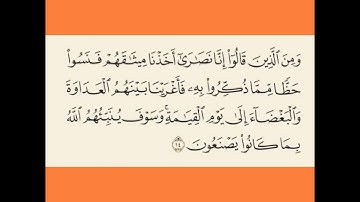 وَمِنَ ٱلَّذِينَ قَالُوٓا۟ إِنَّا نَصَٰرَىٰٓ أَخَذْنَا مِيثَٰقَهُمْ فَنَسُوا۟
حَظًّا مِّمَّا ذُكِّرُوا۟ بِهِۦ فَأَغْرَيْنَا بَيْنَهُمُ ٱلْعَدَاوَةَ
وَٱلْبَغْضَآءَ إِلَىٰ يَوْمِ ٱلْقِيَٰمَةِ ۚ وَسَوْفَ يُنَبِّئُهُمُ ٱللَّهُ
بِمَا كَانُوا۟ يَصْنَعُونَ ١٤